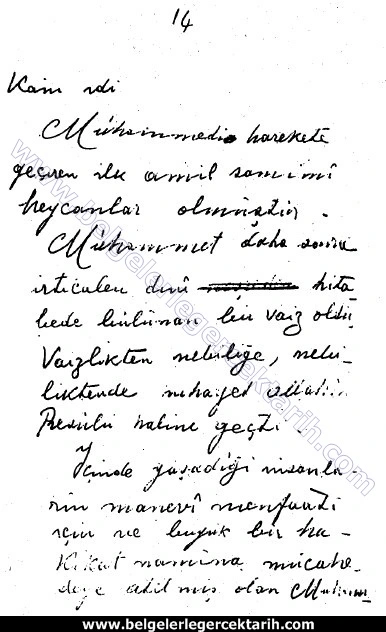 14
Kani idi
Muhammedi harekete
geçiren ilk amil samimî
heycanlar olmuştur.
Muhammet daha sonra
irticalen dinî hita
bede bulunan bir vaiz oldu
Vaizlikten nebiliğe, nebi-
liktende nihayet Allahın
Resulü haline geçti.
İçinde yaşadığı insanla-
rın manevî menfaati
için ve büyük bir ha-
kikat namına mücahe-
deye atılmış olan Muham
www.belgelerlegercektarih.com
www.belgelerlegercektarih.com